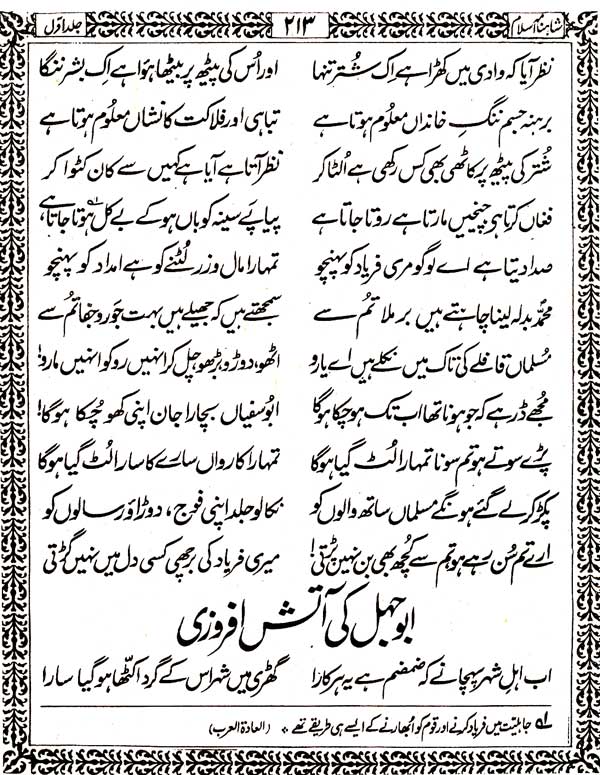 شاہنامۂ اسلام ۲۱۳ جلد اوّل
نظر آیا کہ وادی میں کھڑا ہے اِک شُتر تنہا اور اُس کی پیٹھ پر بیٹھا ہؤا ہے اِک بشر ننگا
برہنہ جسم ننگِ خانداں معلُوم ہوتا ہے تباہی اور فلاکت کا نشاں معلُوم ہوتا ہے
شُتر کی پیٹھ پر کاٹھی بھی کس رکھی ہے اُلٹا کر نظر آتا ہے آیا ہے کہیں سے کان کٹوا کر
فغاں کرتا ہی چیخیں مارتا ہے روتا جاتا ہے پیاپے سینہ کوباں ہو کے بے کل ہوتا جاتا ہے ؎۱
صدا دیتا ہے اے لوگو مری فریاد کو پہنچو تمہارا مال و زر لُٹنے کو ہے امداد کو پہنچو
محمدؐ بدلہ لینا چاہتے ہیں برملا تم سے سمجھتے ہیں کہ جھیلے ہیں بہت جَور و جفا تمُ سے
مُسلماں قافلے کی تاک میں نکلے ہیں اے یارو اٹھو، دوڑو، بڑھو، چل کر انہیں روکو انہیں مارو!
مُجھے ڈر ہے کہ جو ہونا تھا اب تک ہو چکا ہو گا ابوسفیاں بچارا جان اپنی کھو چُکا ہو گا!
پڑے سوتے ہو تم سونا تمہارا لُٹ گیا ہوگا تمہارا کارواں سارے کا سارا لُٹ گیا ہوگا
پکڑ کر لے گئے ہونگے مسلماں ساتھ والوں کو نکالو جلد اپنی فوج، دوڑاؤ رسالوں کو
ارے تم سُن رہے ہو تم سے کُچھ بھی بن نہیں پڑتی! میری فریاد کی برچھی کسی دل میں نہیں گڑتی
ابوجہل کی آتش افروزی
اب اہلِ شہر پہچانے کہ ضمضم ہے یہ ہرکارا گھڑی میں شہر اس کے گرد اکٹھا ہو گیا سارا
؎۱ جاہلیّت میں فریاد کرنے اور قوم کو اُبھارنے کے ایسے ہی طریقے تھے ٭ (العادۃ العرب)